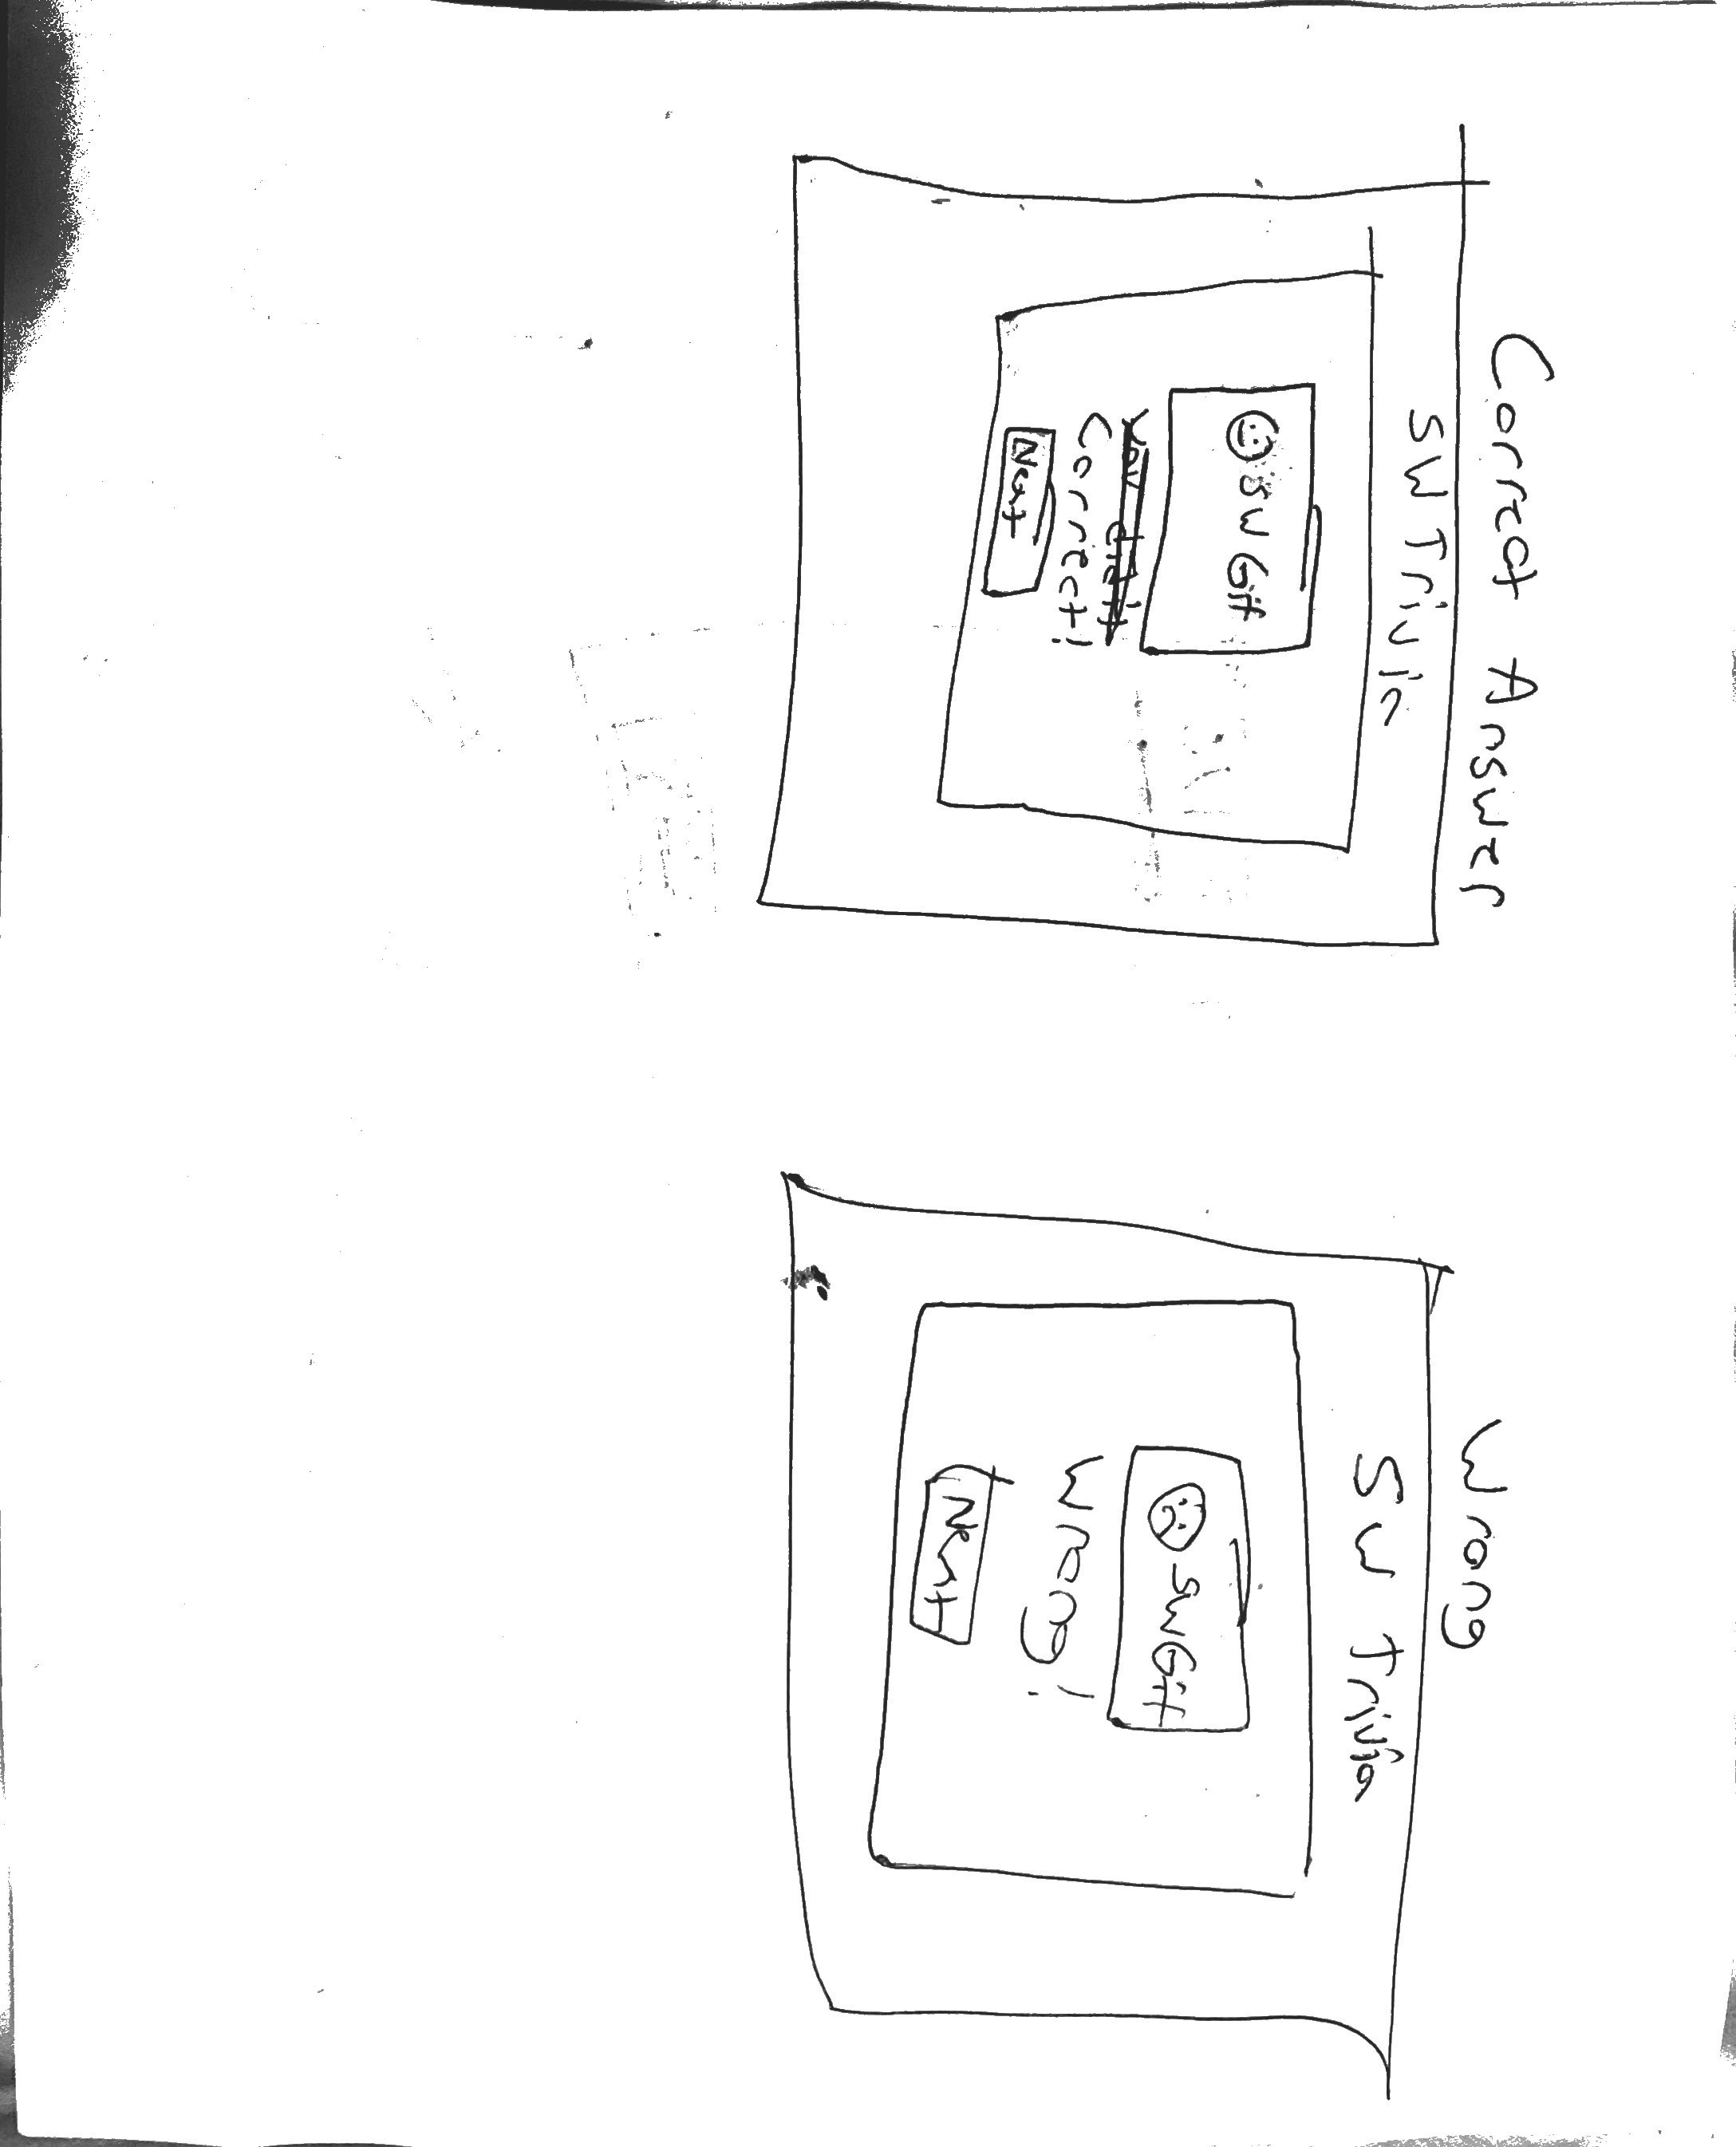 Correct Answer
SW Trivia
SW Gif
Correct!
Next
Wrong
SW Trivia
SW Gif
Wrong!
Next